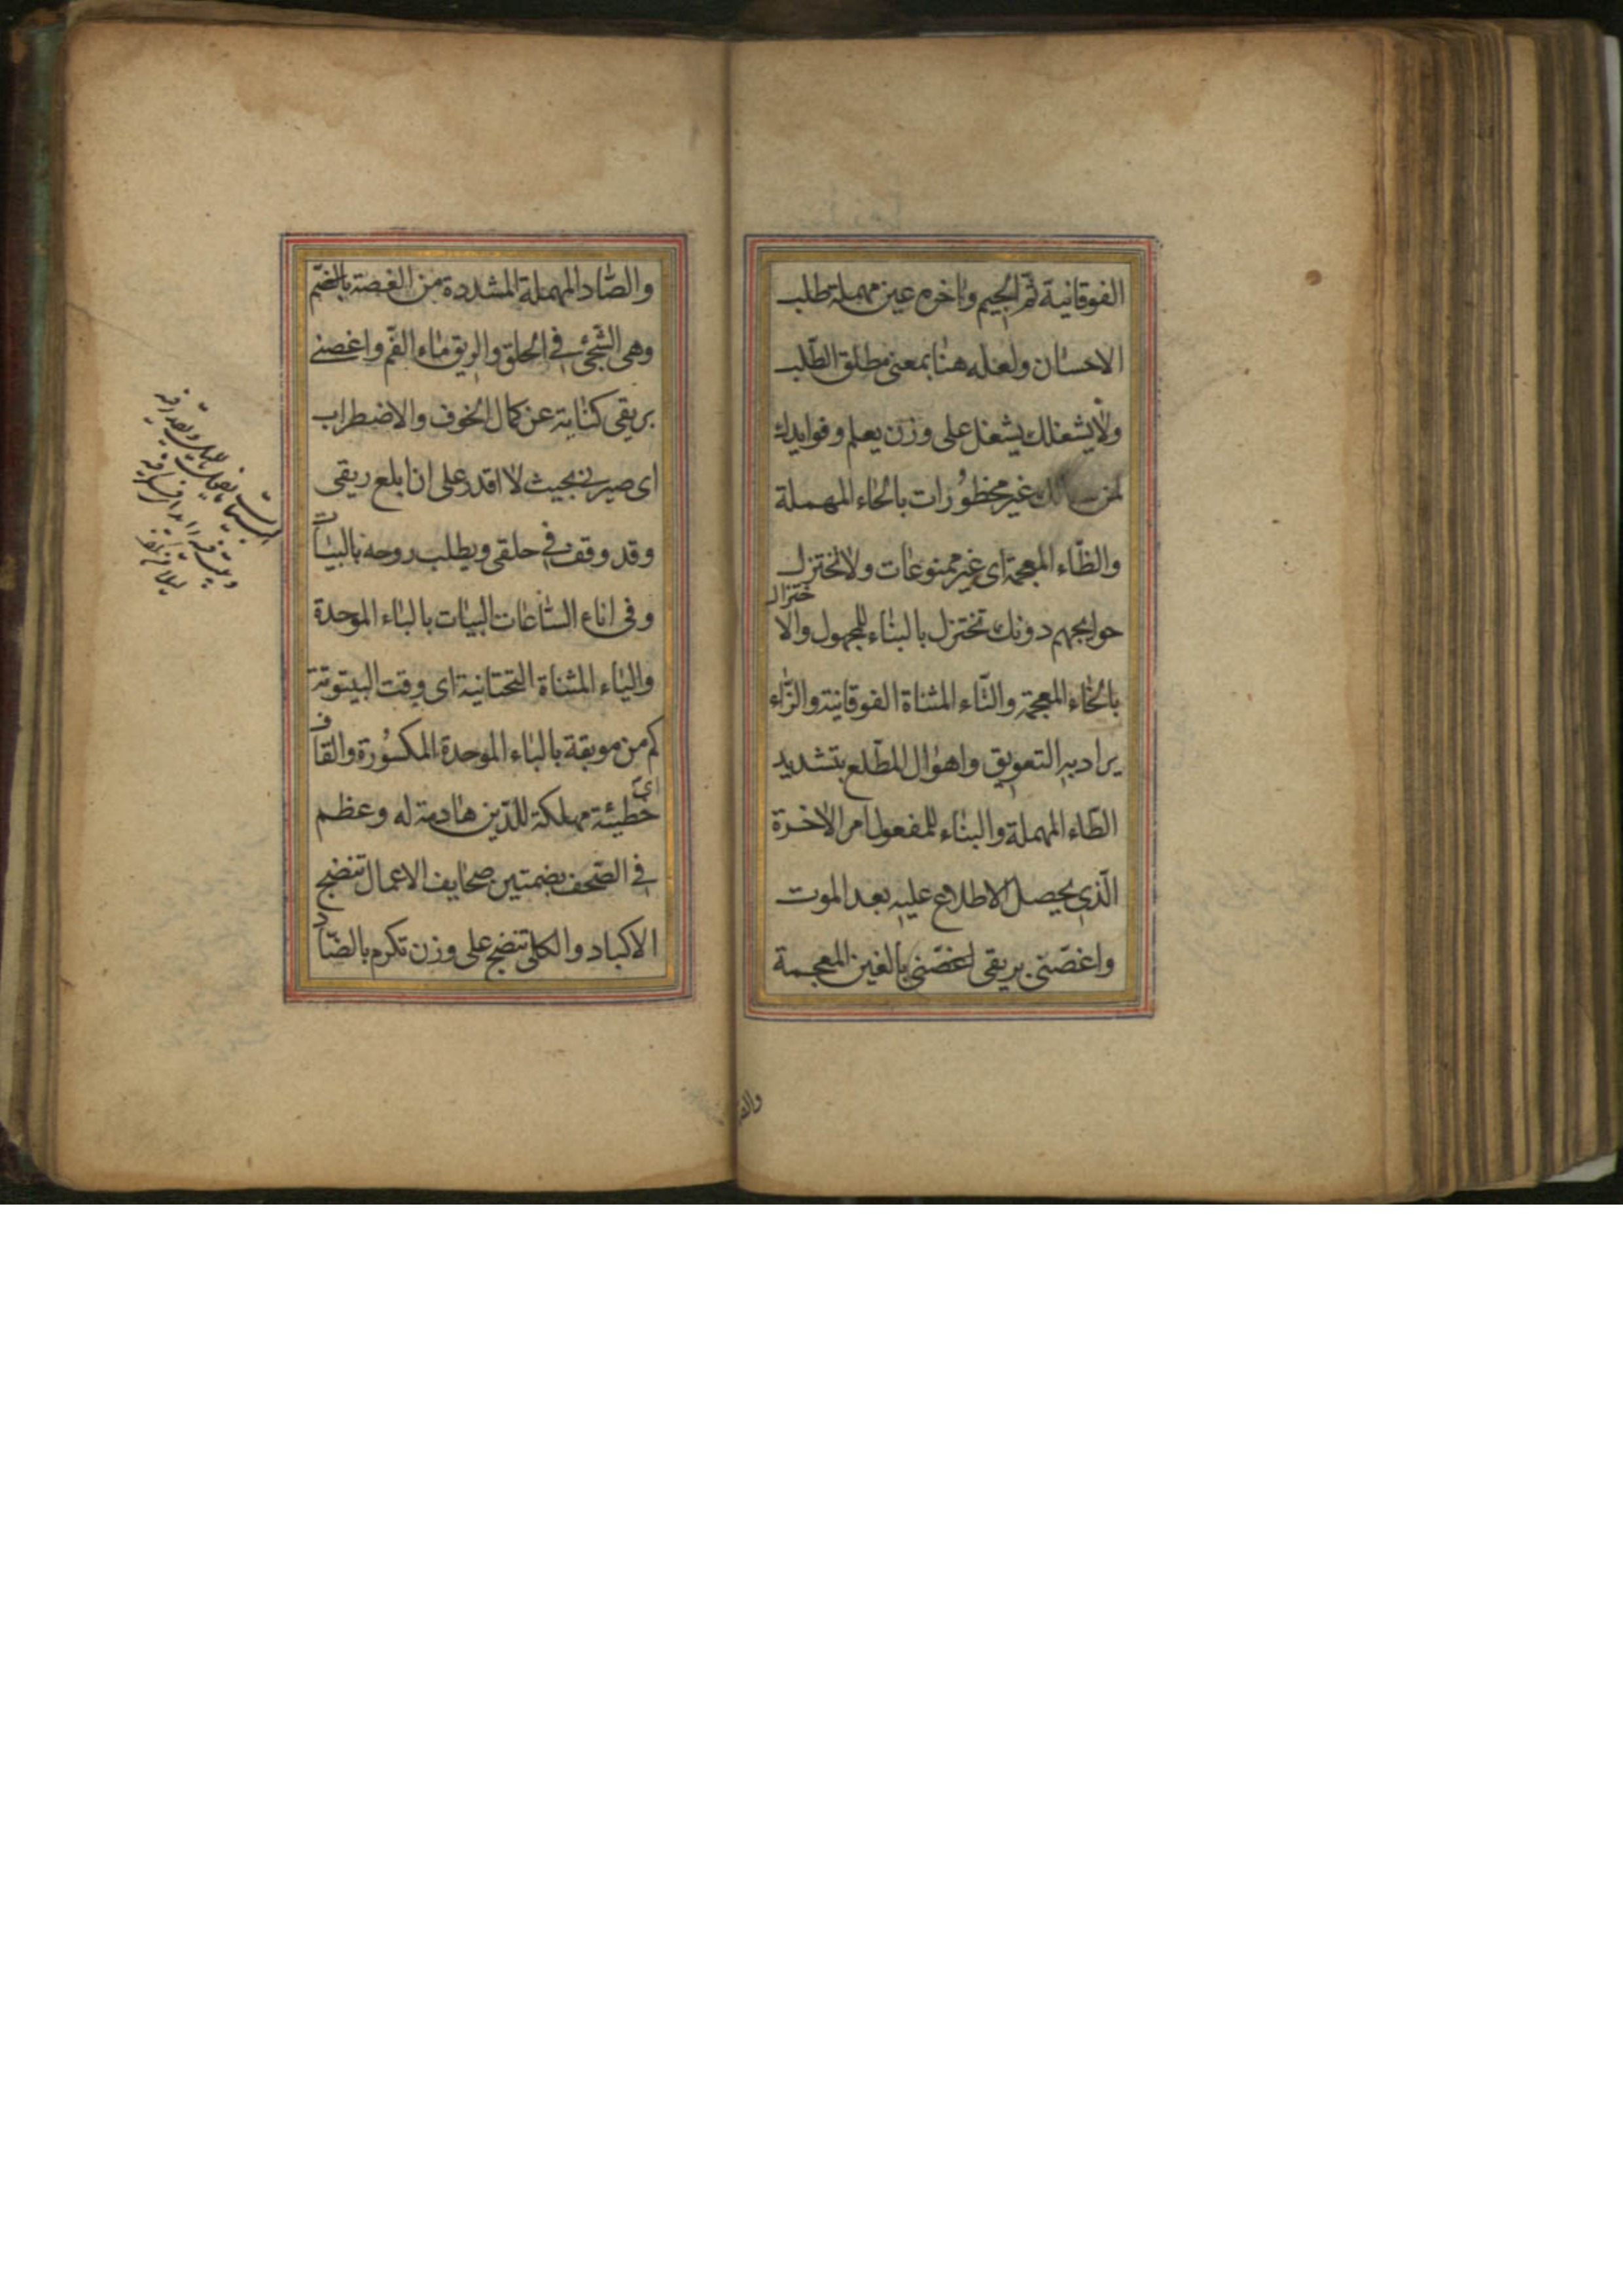 الفوقانية ثم الجيم واخره عين مهملة طلب
الاحسان ولعله هنا بمعنى مطلق الطلب
ولا يشغلك يشغل على وزن يعلم وفوايدك
لمن غير محظورات بالحاء المهملة
والظاء المعجمة اى غير ممنوعات ولا تختزل
حوايجهم دونك تختزل بالبناء للمجهول والاختزال
بالخاء المعجمة والتاء المثناة الفوقانية والزاء
يراد به التعويق واهوال المطّلع بتشديد
الطاء المهملة والبناء للمفعول امر الاخرة
الّذى يحصل الاطلاع عليه بعد الموت
واغصّنى بريقى اغصّنى بالغين المعجمة
والصّاد المهملة المشددة من الغصة بالضّم
وهى الشّجئ فى الحلق والريق ماء الفم واغصنى
بريقى كناية عن كمال الخوف والاضطراب
اى صيرنى بحيث لا اقدر على ان ابلع ريقى
وقد وقف فى حلقى ويطلب روحه بالبيات
وفى اناء السّاعات البيات بالباء الموحدة
والياء المثناة التحتانية اى وقت البيتوتة
كم من موبقة بالباء الموحدة المكسورة والقاف
اى خطيئة مهلكة للدّين هادمة له وعظم
فى الصّحف بضمتين صحايف الاعمال تنضج
الاكباد والكلى تنضج على وزن تكرم بالضّاد